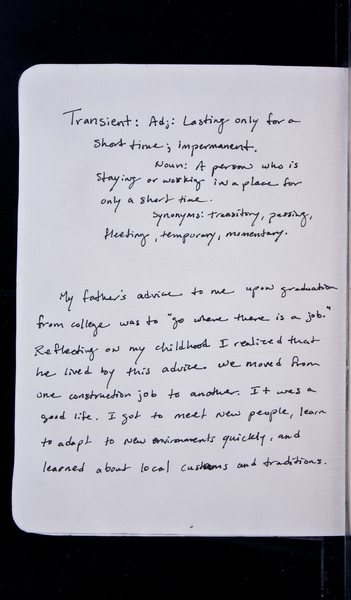 Transient: Adj: Lasting only for a
short time; impermanent.
Noun: A person who is
staying or working in a place for
only a short time.
Synonyms: transitory, passing,
fleeting, temporary, momentary.
My father's advice to me upon graduation
from college was to "go where there is a job."
Reflecting on my childhood I realized that
he lived by this advice. We moved from
one construction job to another. It was a
good life. I got to meet new people, learn
to adapt to new environments quickly, and
learned about local customs and traditions.